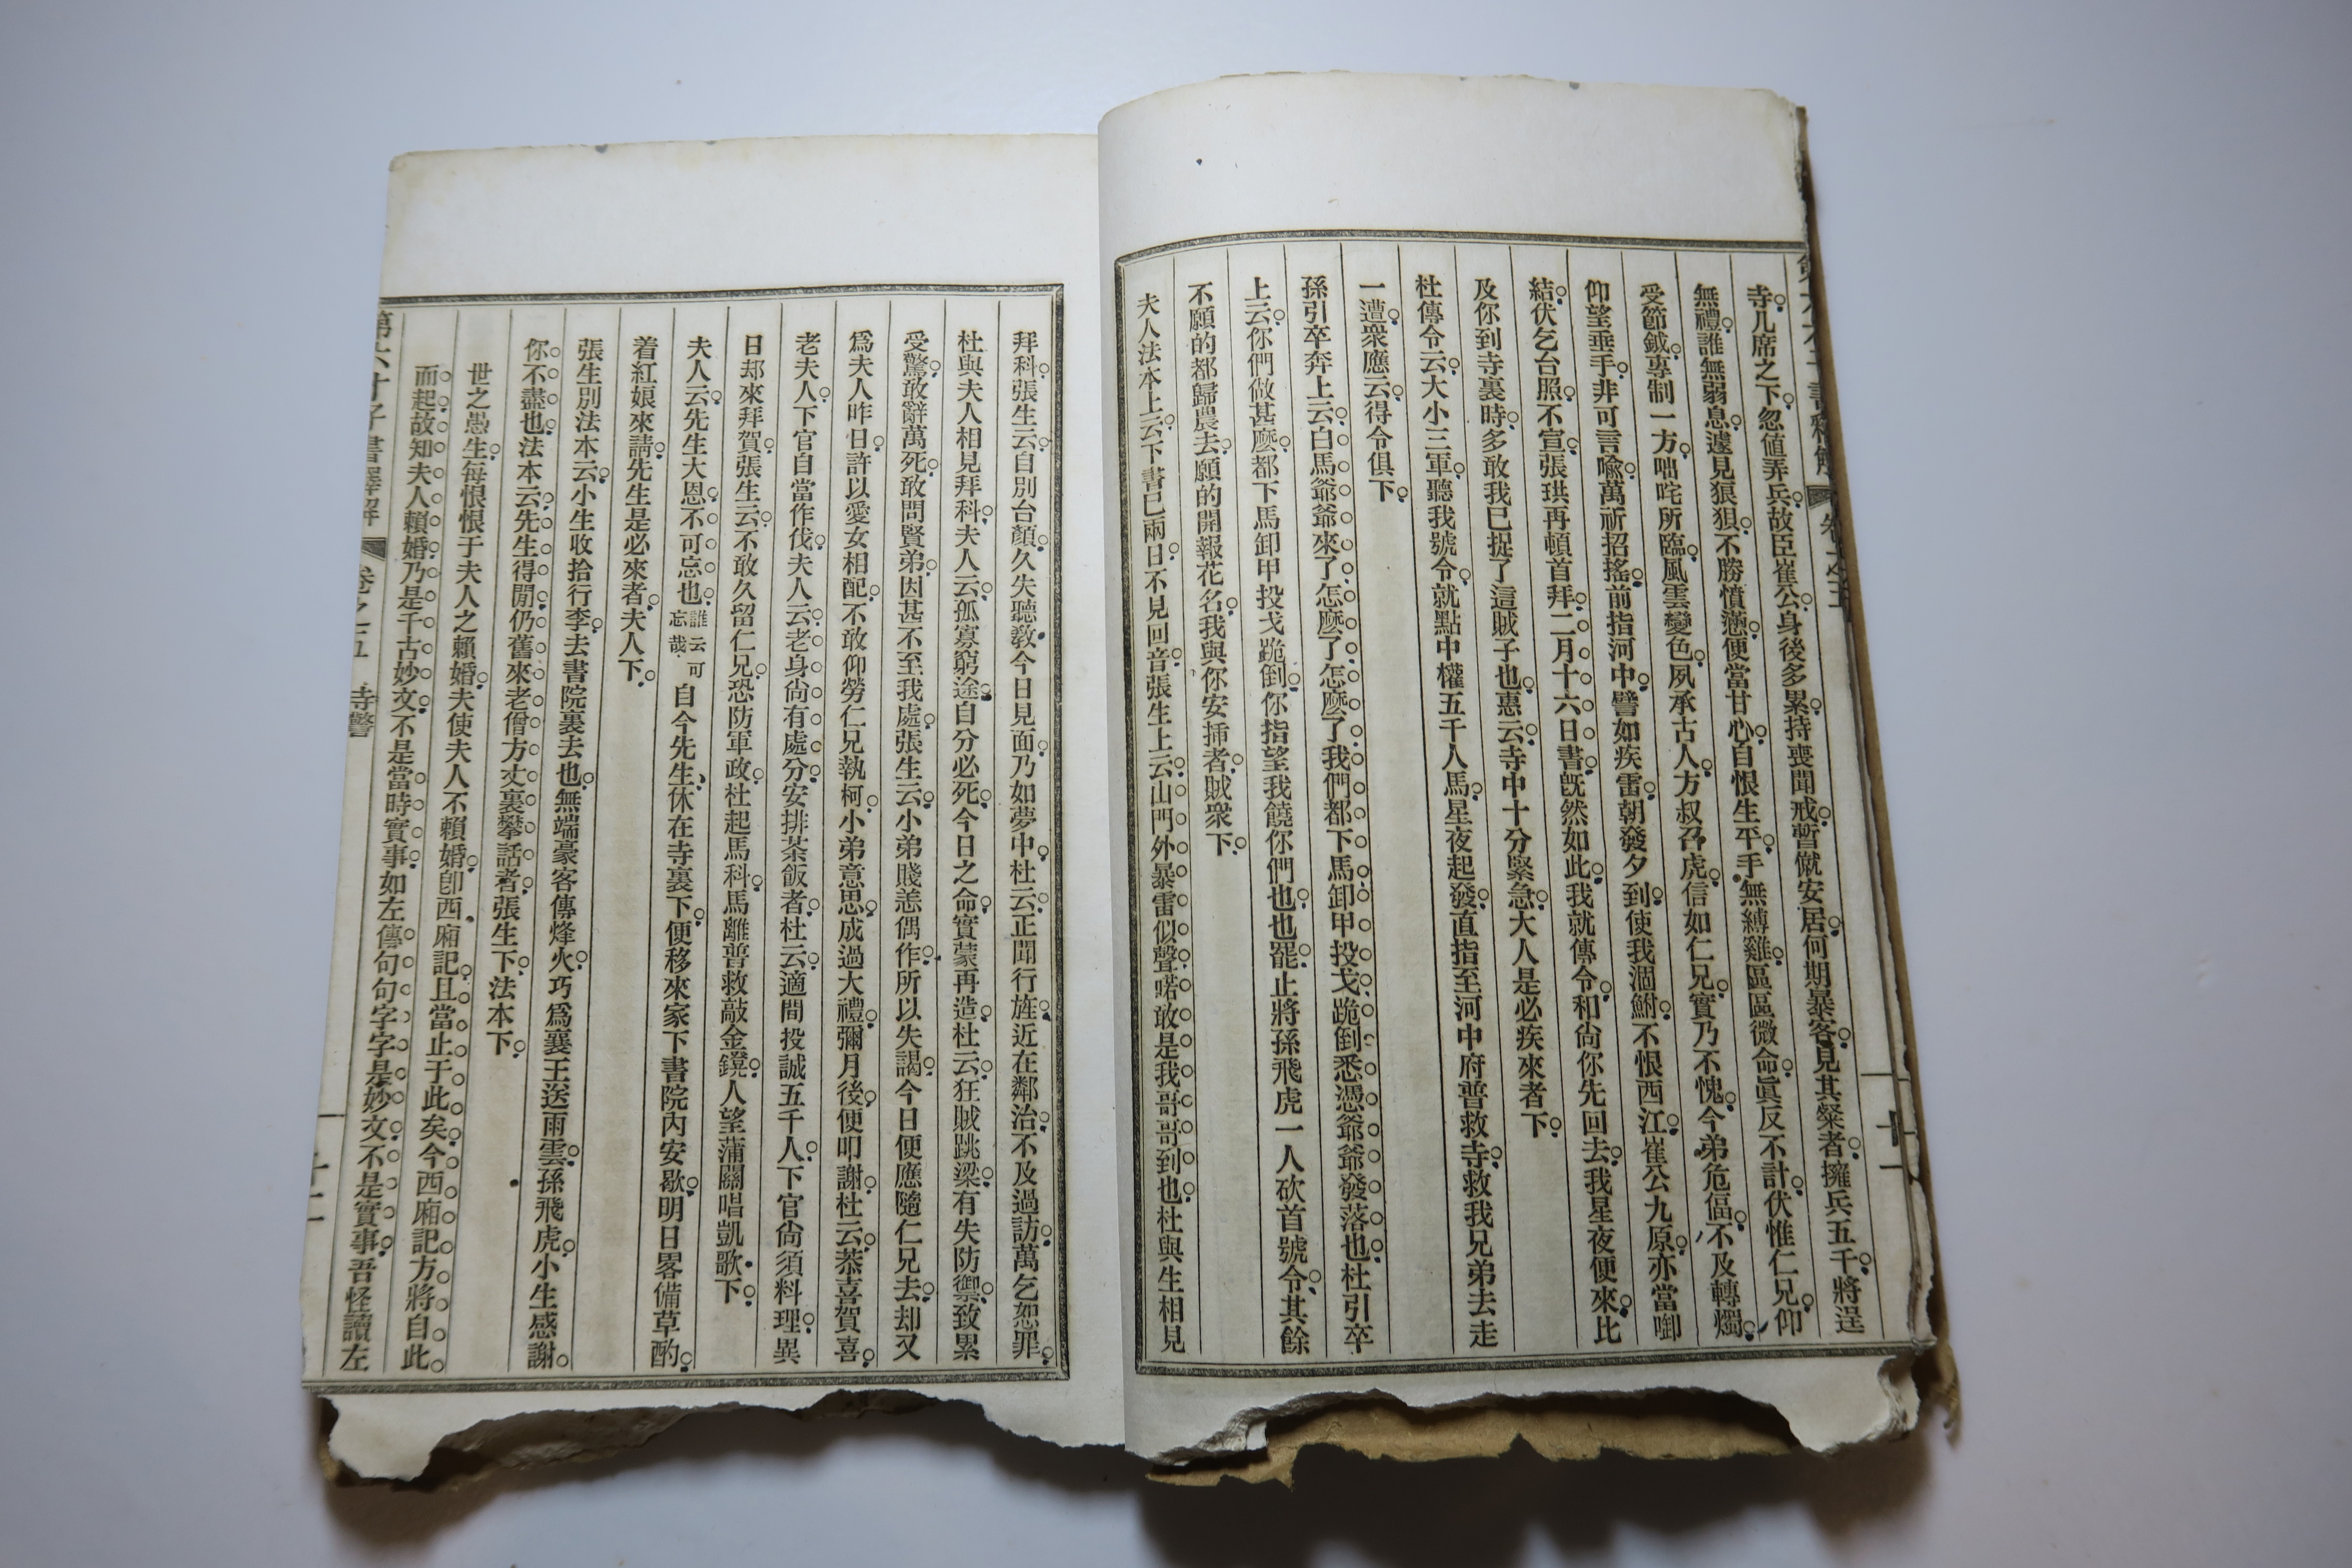 寺几席之下忽値弄兵故臣崔公身後多累持喪聞戒暫僦安居何期暴客見其粲者擁兵五千將逞
無禮誰無弱息遽見狼狽不勝憤懣便當甘心自恨生平手無縛雞區區微命眞反不計伏惟仁兄仰
受節鉞專制一方咄咤所臨風雲變色夙承古人方叔召虎信如仁兄實乃不愧今弟危偪不及轉燭
仰望垂手非可言喩萬祈招搖前指河中譬如疾雷朝發夕到使我涸鮒不恨西江崔公九原亦當啣
結伏乞台照不宣張珙再頓首拜二月十六日書旣然如此我就傳令和尙你先回去我星夜便來比
及你到寺裏時多敢我已捉了這賊子也惠云寺中十分緊急大人是必疾來者下
杜傳令云大小三軍聽我號令就點中權五千人馬星夜起發直指至河中府普救寺救我兄弟去走
一遭衆應云得令俱下
孫引卒奔上云白馬爺爺來了怎麽了怎麽了我們都下馬卸甲投戈跪倒悉憑爺爺發落也杜引卒
上云你們做甚麽都下馬卸甲投戈跪倒你指望我饒你們也也罷止將孫飛虎一人砍首號令其餘
不願的都歸農去願的開報花名我與你安揷者賊衆下
夫人法本上云下書已兩日不見回音張生上云山門外暴雷似聲喏敢是我哥哥到也杜與生相見
拜科張生云自別台顏久失聽敎今日見面乃如夢中杜云正聞行旌近在鄰治不及過訪萬乞恕罪
杜與夫人相見拜科夫人云孤寡窮途自分必死今日之命實蒙再造杜云狂賊跳梁有失防禦致累
受驚敢辭萬死敢問賢弟因甚不至我處張生云小弟賤恙偶作所以失謁今日便應隨仁兄去却又
爲夫人昨日許以愛女相配不敢仰勞仁兄執柯小弟意思成過大禮彌月後便叩謝杜云恭喜賀喜
老夫人下官自當作伐夫人云老身尙有處分安排茶飯者杜云適間投誠五千人下官尙須料理異
日却來拜賀張生云不敢久留仁兄恐防軍政杜起馬科馬離普救敲金鐙人望蒲關唱凱歌下
夫人云先生大恩不可忘也誰云可忘哉自今先生休在寺裏下便移來家下書院內安歇明日畧備草酌
着紅娘來請先生是必來者夫人下
張生別法本云小生收拾行李去書院裏去也無端豪客傳烽火巧爲襄王送雨雲孫飛虎小生感謝
你不盡也法本云先生得閒仍舊來老僧方丈裏攀話者張生下法本下
世之愚生每恨恨于夫人之賴婚夫使夫人不賴婚卽西廂記且當止于此矣今西廂記方將自此
而起故知夫人賴婚乃是千古妙文不是當時實事如左傳句句字字是妙文不是實事吾怪讀左
第六才子書釋解 卷之五 寺警 十二